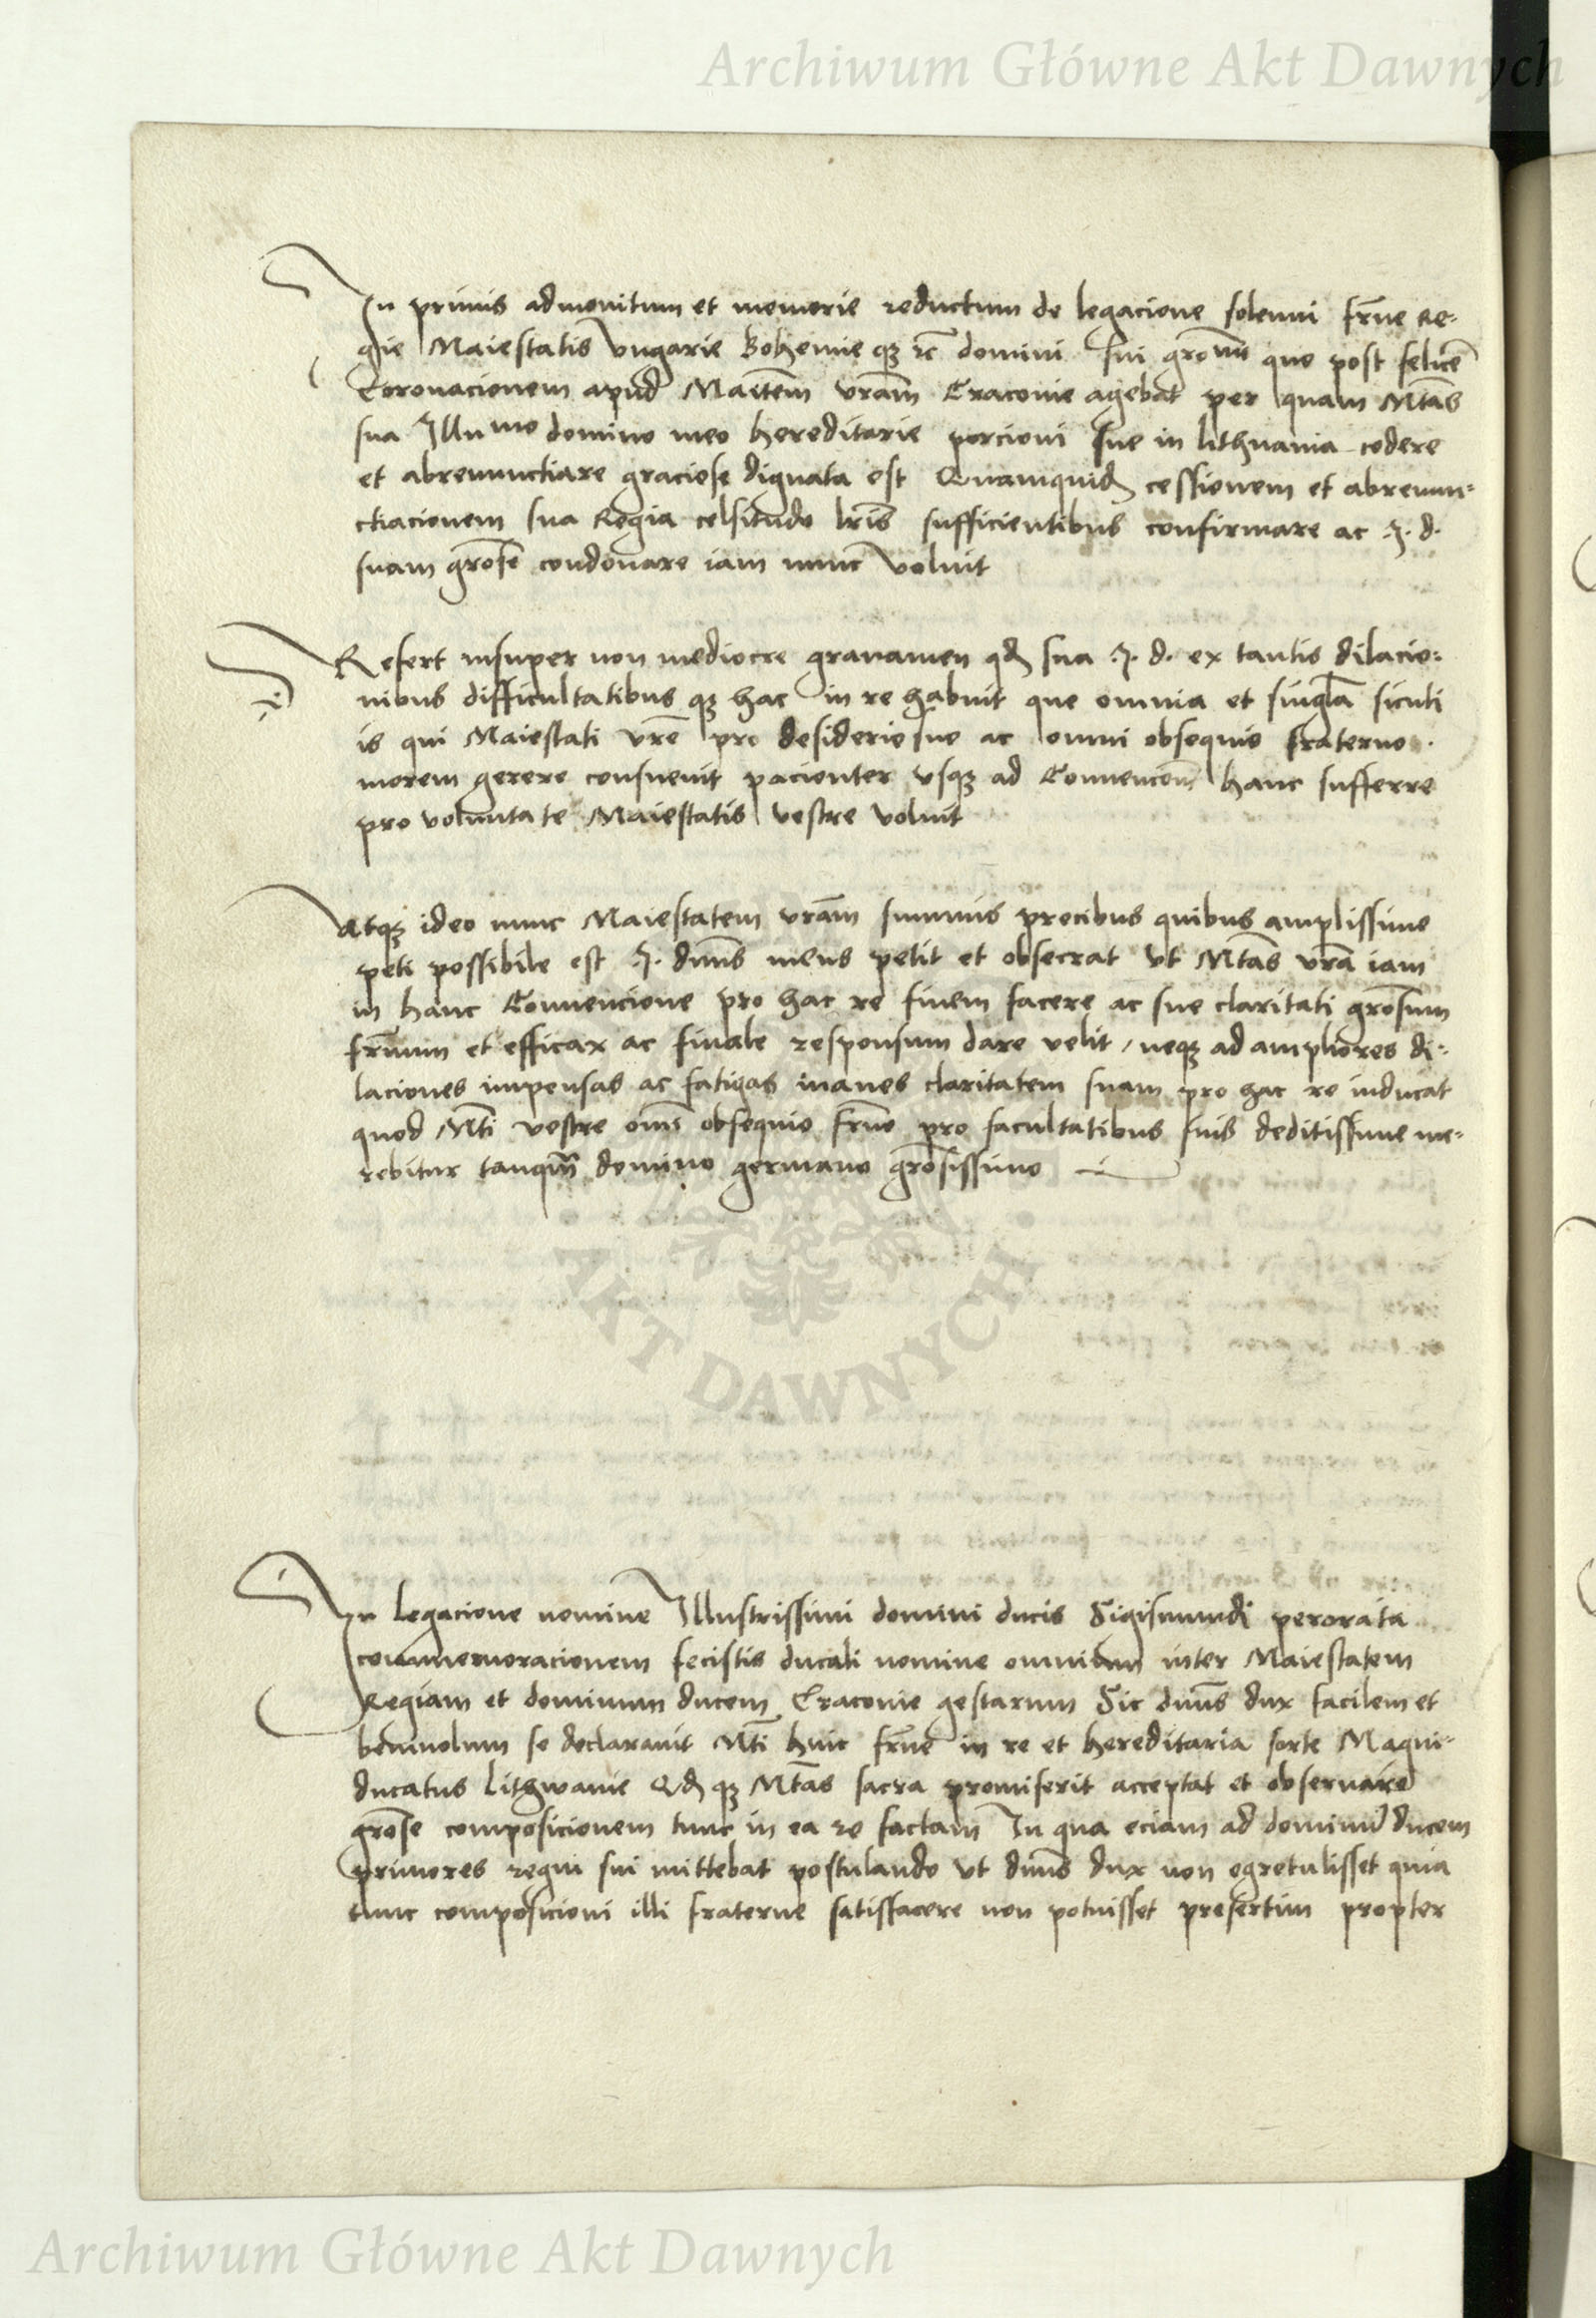 Archiwum Główne Akt Dawnych
In primis admonitum et memorie reductum de legacione solenni frne Re-
gie Maiestatis Ungarie Bohemie qz rc domini sui que post felice
Coronacionem apud Maiestem vram Cracovie agebat per quam Mtas
sua Illumo domino meo hereditarie porcioni sue in lithuania cedere
et abrenunctiare graciose dignata est Quamquid cessionem et abrenun-
ctiacionem sua Regia celsitudo lris sufficientibus confirmare ac .J. d.
suam grose condonare iam nunc voluit
Refert insuper non mediocre gravamen qd sua .J. d. ex tantis dilacio-
nibus difficultatibus qz hac in re habuit que omnia et singla sicuti
is qui Maiestati vre pro desiderio suo ac omni obsequio fraterno
morem gerere consuevit pacienter usqz ad Convencem hanc sufferre
pro voluntate Maiestatis vestre voluit
Atqz ideo nunc Maiestatem vram summis precibus quibus amplissime
peti possibile est .J. dnus meus petit et obsecrat ut Mtas vra iam
in hanc Convencione pro hac re finem facere ac sue claritati grosum
frnum et efficax ac finale responsum dare velit, neqz ad ampliores di-
laciones impensas ac fatigas inanes claritatem suam pro hac re inducat
quod Mti vestre omi obsequio frno pro facultatibus suis deditissime me-
rebitur tanqm domino germano grosissimo
AKT DAWNYCH
In legacione nomine Illustrissimi domini ducis Sigismundi perorata
commemoracionem fecistis ducali nomine omnium inter Maiestatem
Regiam et dominum ducem Cracovie gestarum Sic dnus dux facilem et
benivolum se declaravit Mti huic frne in re et hereditaria sorte Magni-
ducatus Lithwanie Qd qz Mtas sacra promiserit acceptat et observare
grose composicionem tunc in ea re factam In qua eciam ad dominu ducem
primores regni sui mittebat postulando ut dnus dux non egretulisset quia
tunc composicioni illi fraterne satisfacere non potuisset presertim propter
Archiwum Główne Akt Dawnych